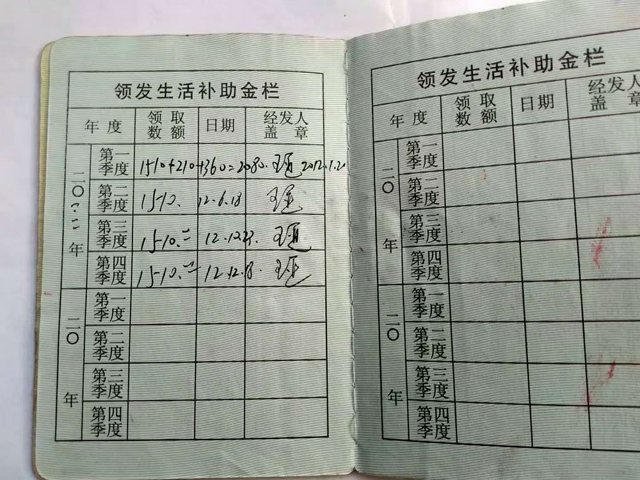 领发生活补助金栏
年度 领取数额 日期 经发人盖章
二〇一二年
第一季度 1510+210+360=2080. 2012.1.20
第二季度 1510. 12.6.18
第三季度 1510.
第四季度 1510. 12.12.18.
二〇 年
第一季度
第二季度
第三季度
第四季度
领发生活补助金栏
年度 领取数额 日期 经发人盖章
二〇 年
第一季度
第二季度
第三季度
第四季度
二〇 年
第一季度
第二季度
第三季度
第四季度